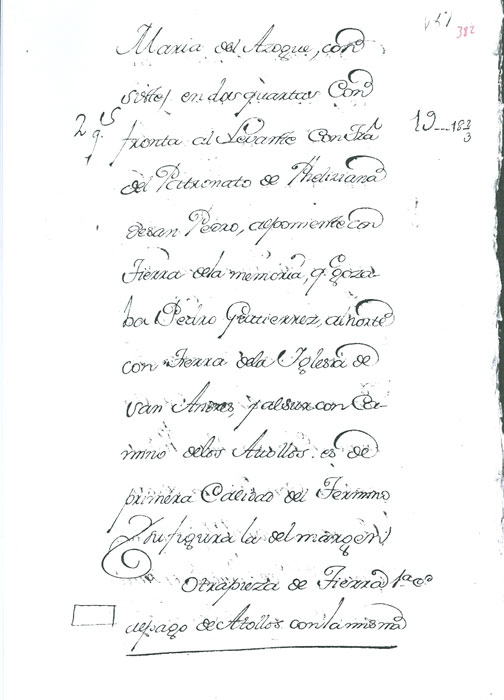 382
Maria del Azogue, con
siste en dos quartas Con
2 q.s
fronta al Levante con Tra
19...183
3
del Patronato de Pheliziana
de san Pedro, al poniente con
Tierra de la memoria, q.e goza
ba Pedro Gutierrez, al norte
con Tierra dela Iglesia de
san Andres, y al sur con Ca
mino delos Atollos. es de
primera Calidad del Termino
Y su figura la del margen
Otra pieza de Tierra 1.a c.d
al pago de Atollos con la misma